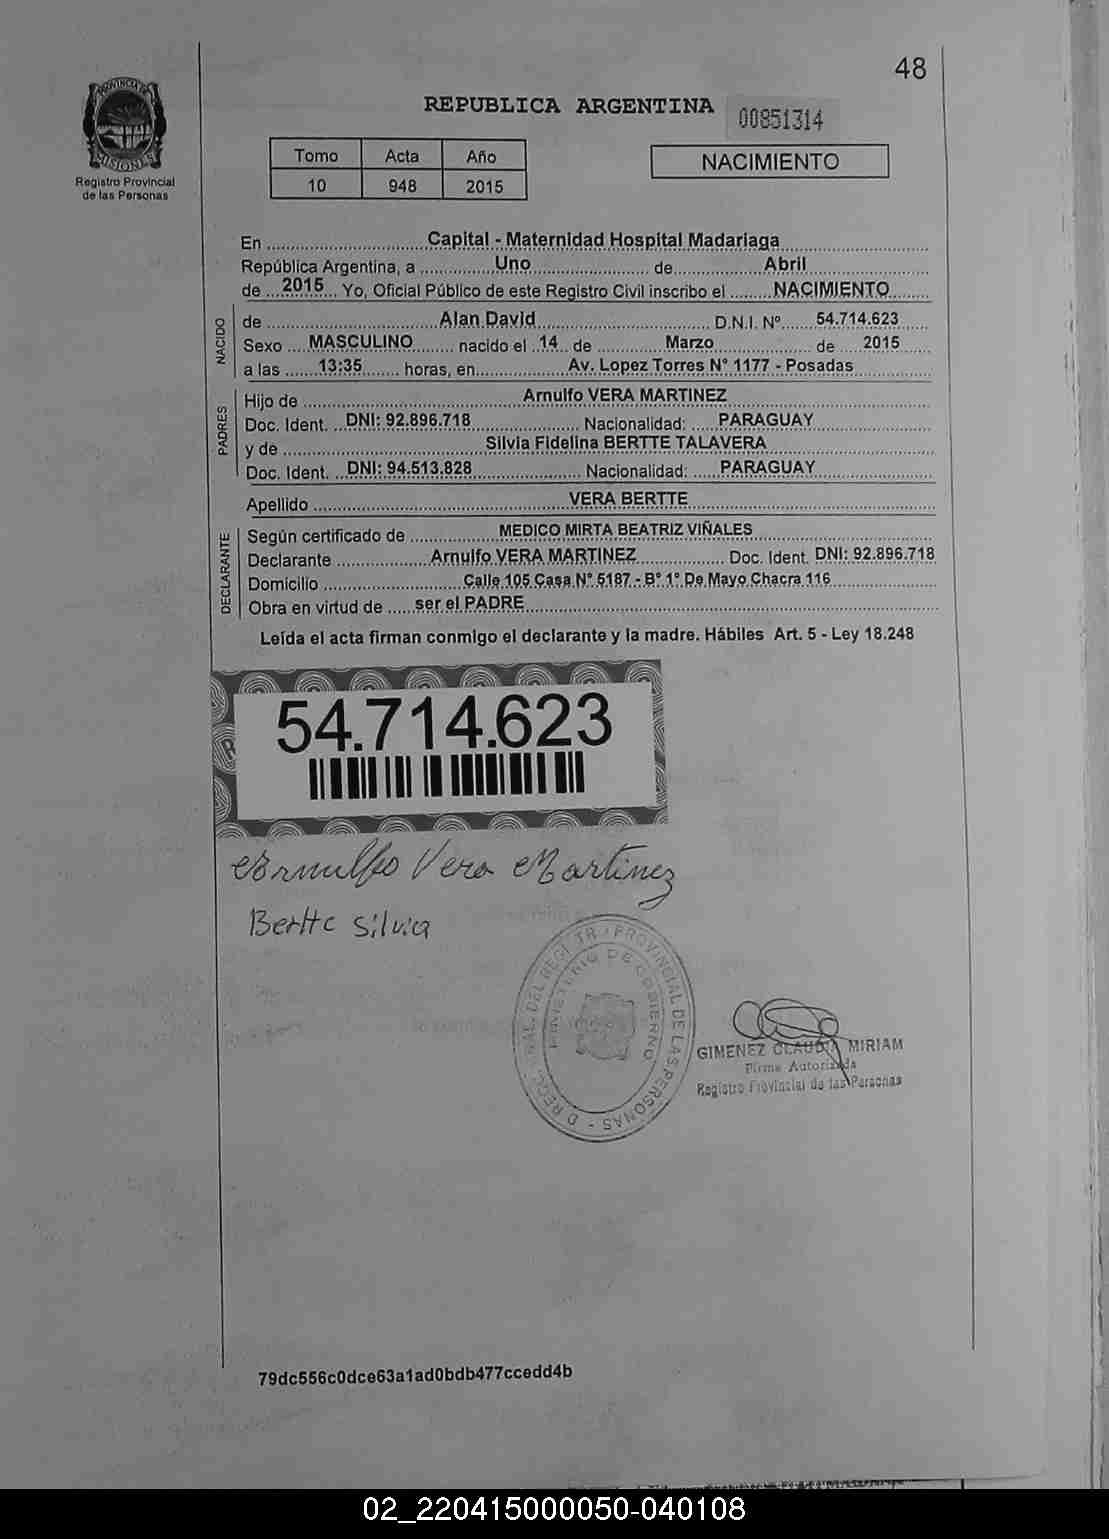 48
PROVINCIA DE
MISIONES
Registro Provincial
de las Personas
REPUBLICA ARGENTINA
00851314
Tomo Acta Año
10 948 2015
NACIMIENTO
En ........ Capital - Maternidad Hospital Madariaga
República Argentina, a ........ Uno ........ de ........ Abril
de .... 2015 ... Yo, Oficial Público de este Registro Civil inscribo el ........ NACIMIENTO
NACIDO
de ........ Alan David ........ D.N.I. Nº ....... 54.714.623
Sexo .... MASCULINO ........ nacido el 14 de ........ Marzo ........ de 2015
a las ...... 13:35 ....... horas, en ........ Av. Lopez Torres N° 1177 - Posadas
PADRES
Hijo de ........ Arnulfo VERA MARTINEZ
Doc. Ident. ... DNI: 92.896.718 ........ Nacionalidad: ..... PARAGUAY
y de ........ Silvia Fidelina BERTTE TALAVERA
Doc. Ident. ... DNI: 94.513.828 ........ Nacionalidad: ..... PARAGUAY
Apellido ........ VERA BERTTE
DECLARANTE
Según certificado de ........ MEDICO MIRTA BEATRIZ VIÑALES
Declarante ........ Arnulfo VERA MARTINEZ ........ Doc. Ident. DNI: 92.896.718
Domicilio ........ Calle 105 Casa N° 5187 - B° 1° De Mayo Chacra 116
Obra en virtud de ..... ser el PADRE
Leída el acta firman conmigo el declarante y la madre. Hábiles Art. 5 - Ley 18.248
54.714.623
Arnulfo Vera Martinez
Bertte Silvia
PROVINCIAL DE LAS PERSONAS
MINISTERIO DE GOBIERNO
GIMENEZ CLAUDIA MIRIAM
Firma Autorizada
Registro Provincial de las Personas
79dc556c0dce63a1ad0bdb477ccedd4b
02_220415000050-040108